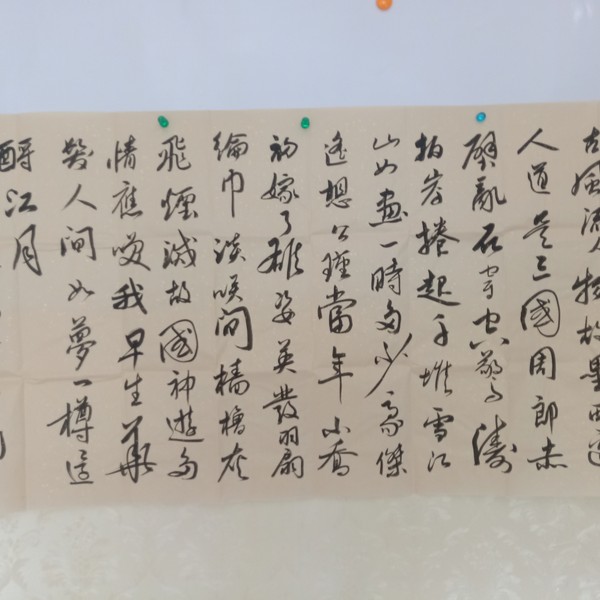 古風流人物故壘西邊
人道是三國周郎赤
壁亂石穿空驚濤
拍岸捲起千堆雪江
山如畫一時多少豪傑
遙想公瑾當年小喬
初嫁了雄姿英發羽扇
綸巾談笑間檣櫓灰
飛煙滅故國神遊多
情應笑我早生華
髮人間如夢一樽還
酹江月